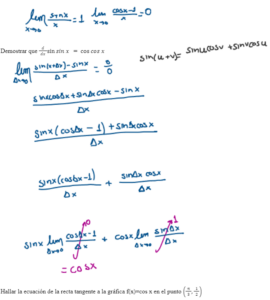 lim x→0 sinx/x = 1   lim x→0 cosx-1/x = 0
Demostrar que d/dx sin x = cos x
sin(u+v) = sinu cosv + sinv cosu
lim Δx→0 sin(x+Δx) - sinx / Δx = 0/0
sinx cosΔx + sinΔx cosx - sinx / Δx
sinx (cosΔx - 1) + sinΔx cosx / Δx
sinx (cosΔx-1) / Δx + sinΔx cosx / Δx
sinx lim Δx→0 cosΔx-1 / Δx + cosx lim Δx→0 sinΔx / Δx
0   1
= cosx
Hallar la ecuación de la recta tangente a la gráfica f(x)=cos x en el punto (π/3, 1/2)